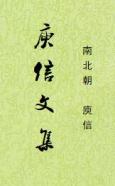 庾信文集
南北朝 庾信